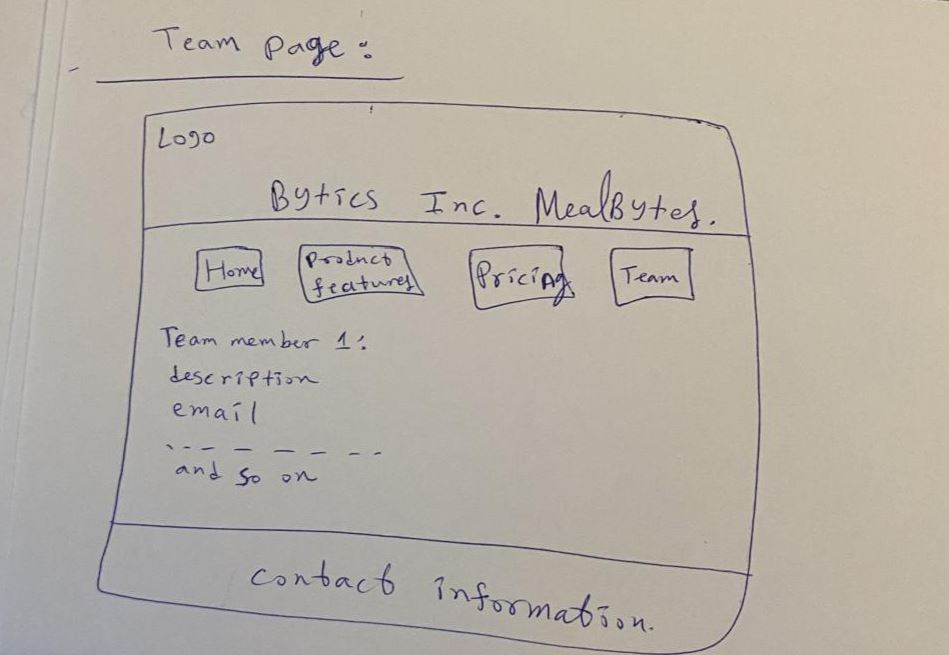 Team page:
Logo
Bytics Inc. MealBytes.
Home
Product
features
Pricing
Team
Team member 1:
description
email
and so on
contact information.